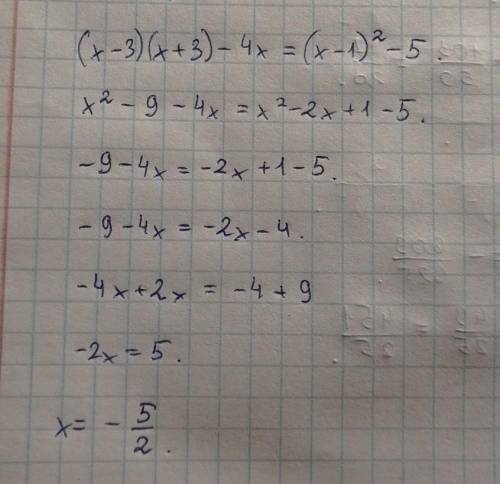 (x-3)(x+3)-4x = (x-1)² - 5.
x² - 9 - 4x = x² - 2x + 1 - 5.
-9 - 4x = -2x + 1 - 5.
-9 - 4x = -2x - 4.
-4x + 2x = -4 + 9
-2x = 5.
x = - 5/2.